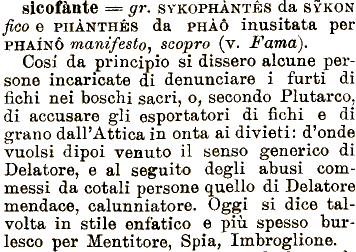 sicofànte = gr. SYKOPHÀNTÊS da SŶKON
fico e PHÀNTHÊS da PHÀÔ inusitata per
PHAÍNÔ manifesto, scopro (v. Fama).
Cosí da principio si dissero alcune per-
sone incaricate di denunciare i furti di
fichi nei boschi sacri, o, secondo Plutarco,
di accusare gli esportatori di fichi e di
grano dall'Attica in onta ai divieti: d'onde
vuolsi dipoi venuto il senso generico di
Delatore, e al seguito degli abusi com-
messi da cotali persone quello di Delatore
mendace, calunniatore. Oggi si dice tal-
volta in stile enfatico e più spesso bur-
lesco per Mentitore, Spia, Imbroglione.